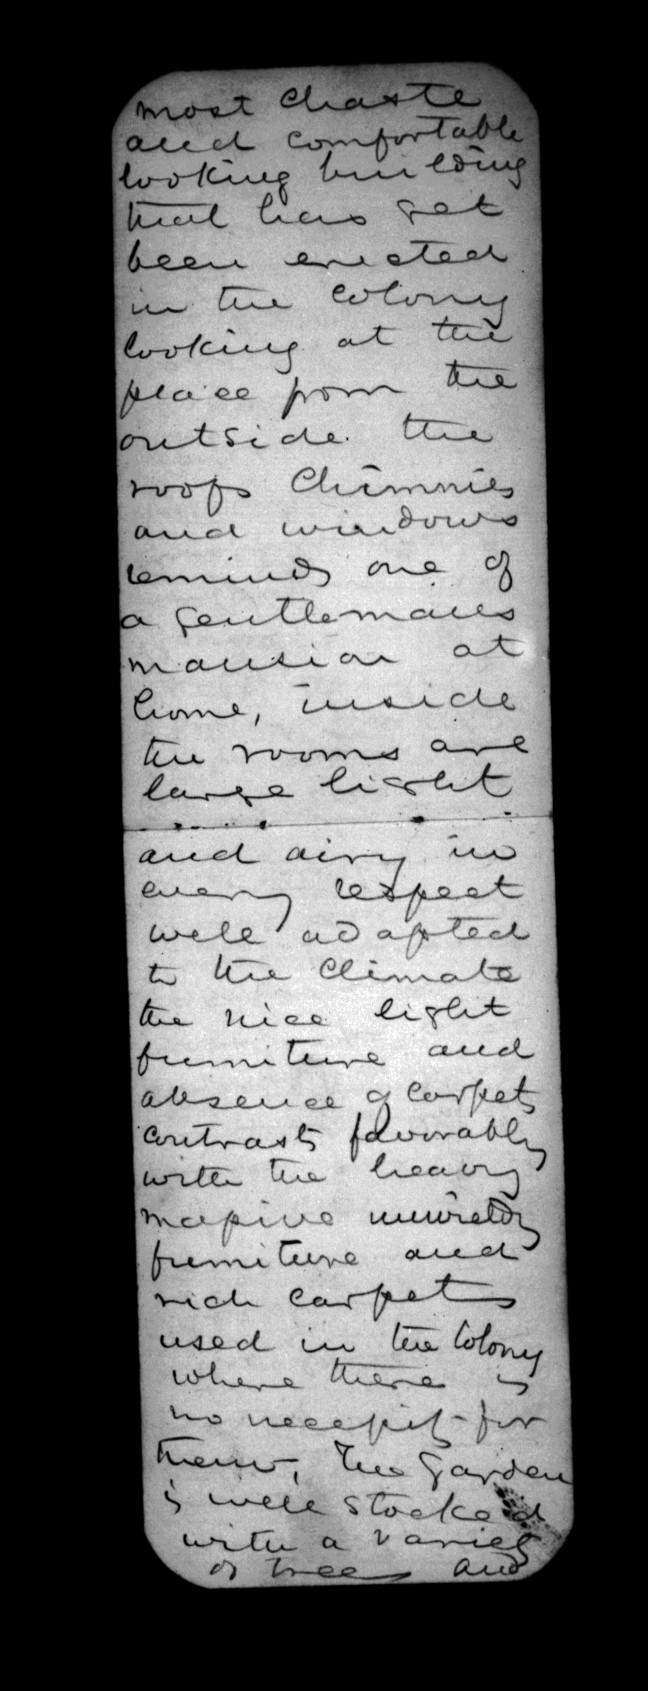 most chaste
and comfortable
looking building
that has yet
been erected
in the Colony
looking at the
place from the
outside. the
roofs Chimnies
and windows
reminds one of
a gentlemans
mansion at
home, inside
the rooms are
large light
and airy in
every respect
well adapted
to the Climate
the nice light
furniture and
absence of carpets
contrasts favorably
with the heavy
massive unwieldy
furniture and
rich carpets
used in the Colony
where there is
no necessity for
them, The Garden
is well stocked
with a variety
of trees and